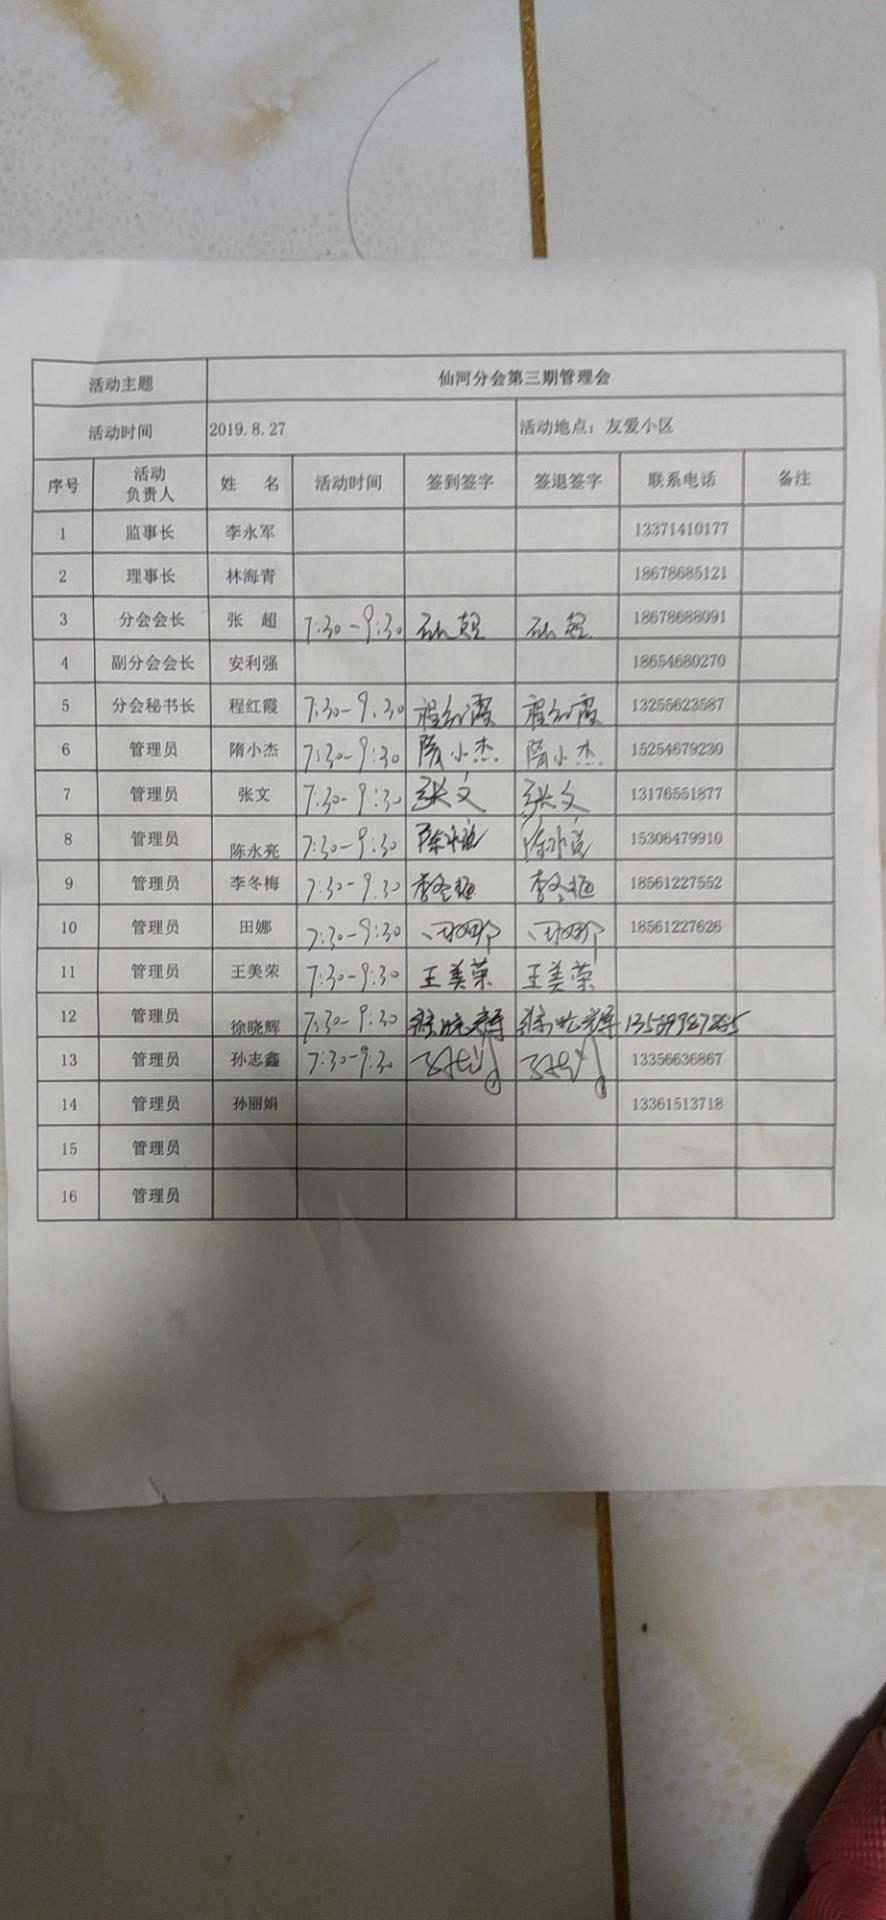 活动主题 仙河分会第三期管理会
活动时间 2019.8.27 活动地点：友爱小区
序号 活动负责人 姓 名 活动时间 签到签字 签退签字 联系电话 备注
1 监事长 李永军 13371410177
2 理事长 林海青 18678685121
3 分会会长 张 超 7:30-9:30 18678688091
4 副分会会长 安利强 18654680270
5 分会秘书长 程红霞 7:30-9:30 程红霞 程红霞 13255623587
6 管理员 隋小杰 7:30-9:30 隋小杰 隋小杰 15254679230
7 管理员 张文 7:30-9:30 张文 张文 13176551877
8 管理员 陈永亮 7:30-9:30 陈永亮 陈永亮 15306479910
9 管理员 李冬梅 7:30-9:30 李冬梅 李冬梅 18561227552
10 管理员 田娜 7:30-9:30 田娜 田娜 18561227626
11 管理员 王美荣 7:30-9:30 王美荣 王美荣
12 管理员 徐晓辉 7:30-9:30 徐晓辉 徐晓辉
13 管理员 孙志鑫 7:30-9:30 13356636867
14 管理员 孙丽娟 13361513718
15 管理员
16 管理员